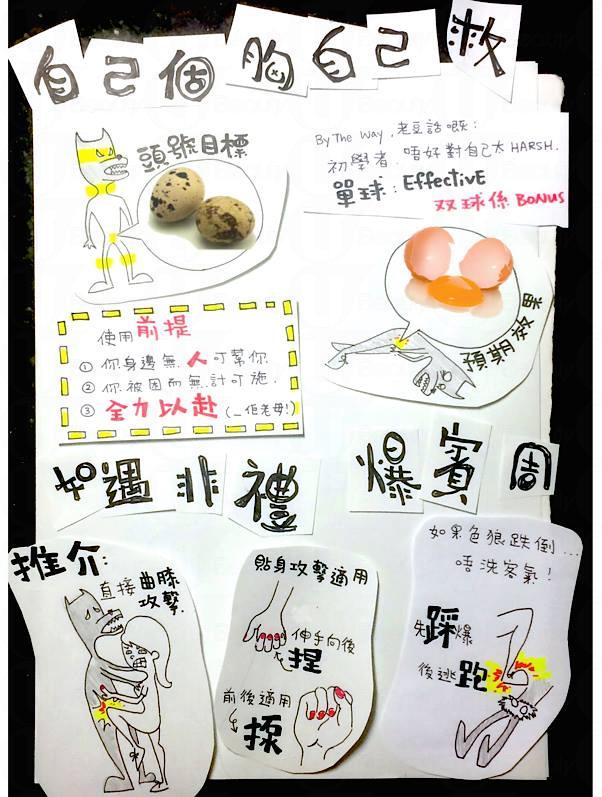 自己個胸自己救
頭號目標
By The Way, 老豆話嘅:
初學者,唔好對自己太 HARSH.
單球: EffectivE
双球係 BONUS
預期效果
使用前提
① 你身邊無人可幫你
② 你被困而無計可施.
③ 全力以赴 (一佢老母!)
如遇非禮 爆賓周
推介:
直接曲膝
攻擊.
貼身攻擊適用
伸手向後
捏
前後適用
揼
如果色狼跌倒...
唔洗客氣!
先踩爆
後逃跑